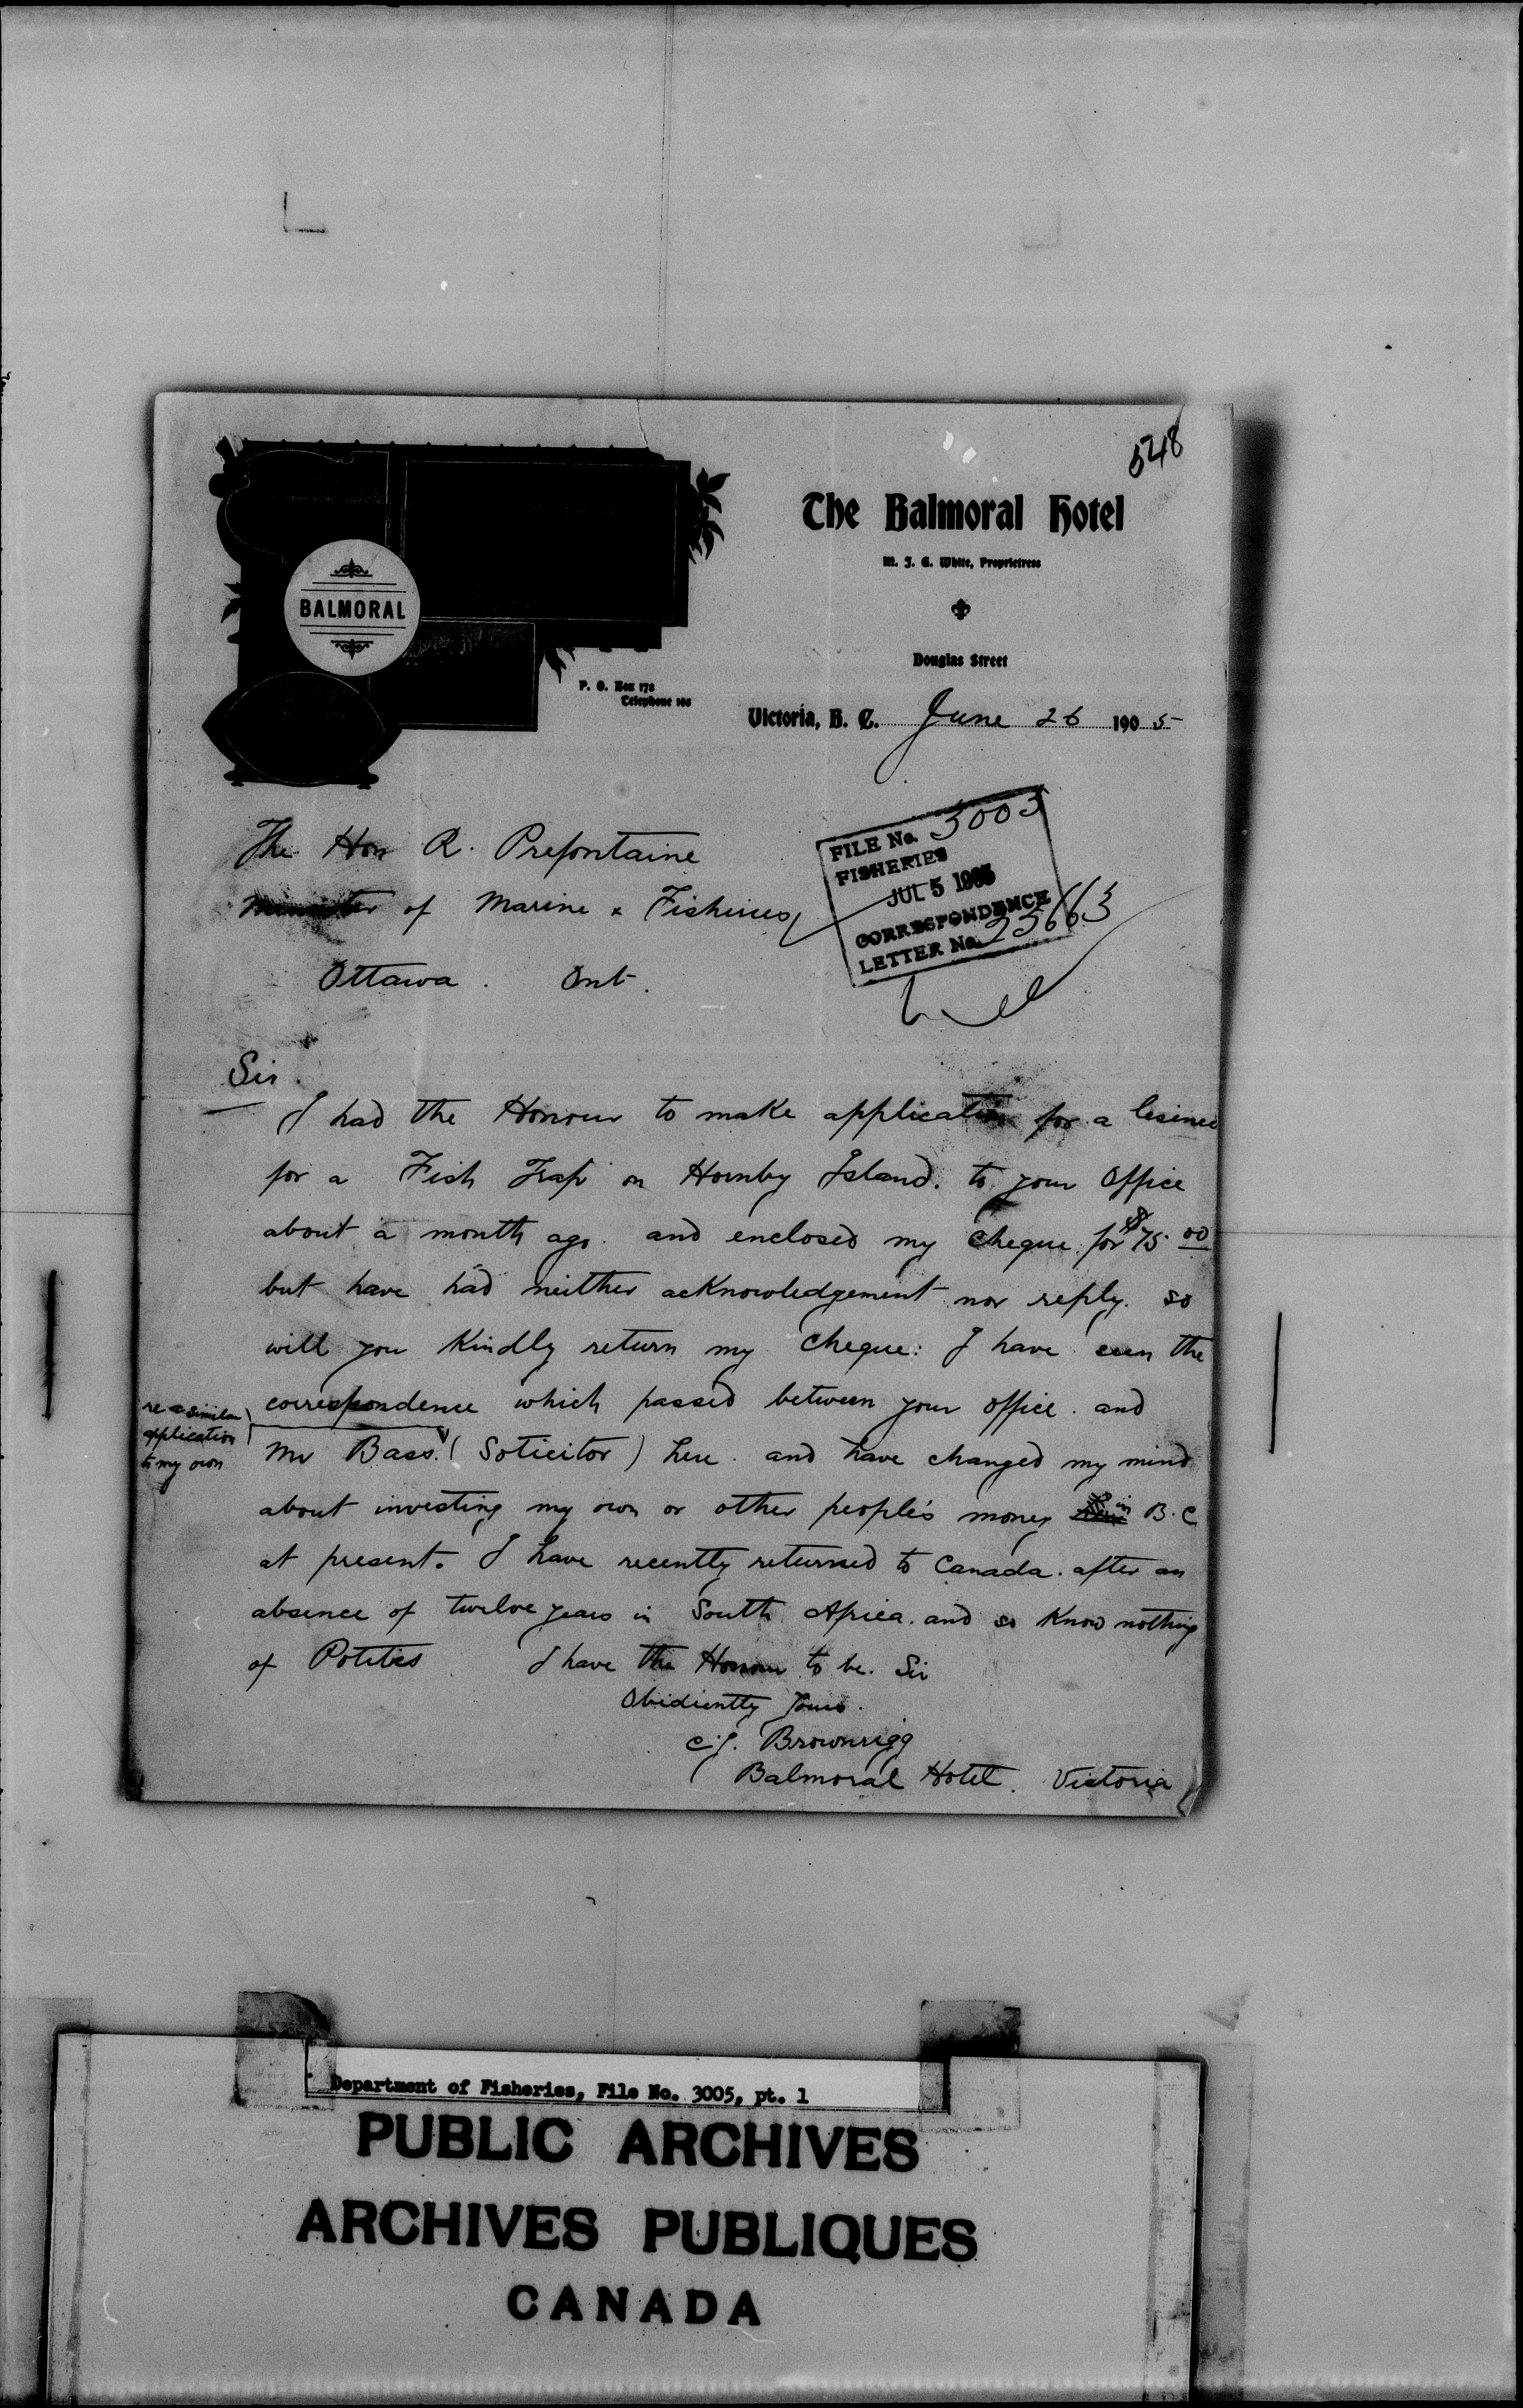 548
The Balmoral Hotel
M. J. G. White, Proprietress
BALMORAL
Douglas Street
P. O. Box 178
Telephone 108
Victoria, B. C. June 26 1905
The Hon R. Prefontaine
Minister of Marine & Fisheries
Ottawa. Ont.
FILE No. 3005
FISHERIES
JUL 5 1905
CORRESPONDENCE
LETTER No. 25663
Sir.
I had the Honour to make application for a lisince
for a Fish Trap on Hornby Island. to your Office
about a month ago. and enclosed my cheque for $75.00
but have had neither acknowledgement nor reply. so
will you Kindly return my cheque: I have seen the
correspondence which passed between your office. and
re a similar
application
to my own
Mr Bass. (Soticitor) here. and have changed my mind
about investing my own or other people's money in B.C
at present. I have recently returned to Canada. after an
absence of twelve years in South Africa. and so Know nothing
of Potitics I have the Honour to be. Sir
Obidiently Yours.
C.J. Brownrigg
Balmoral Hotel. Victoria
Department of Fisheries, File No. 3005, pt. 1
PUBLIC ARCHIVES
ARCHIVES PUBLIQUES
CANADA